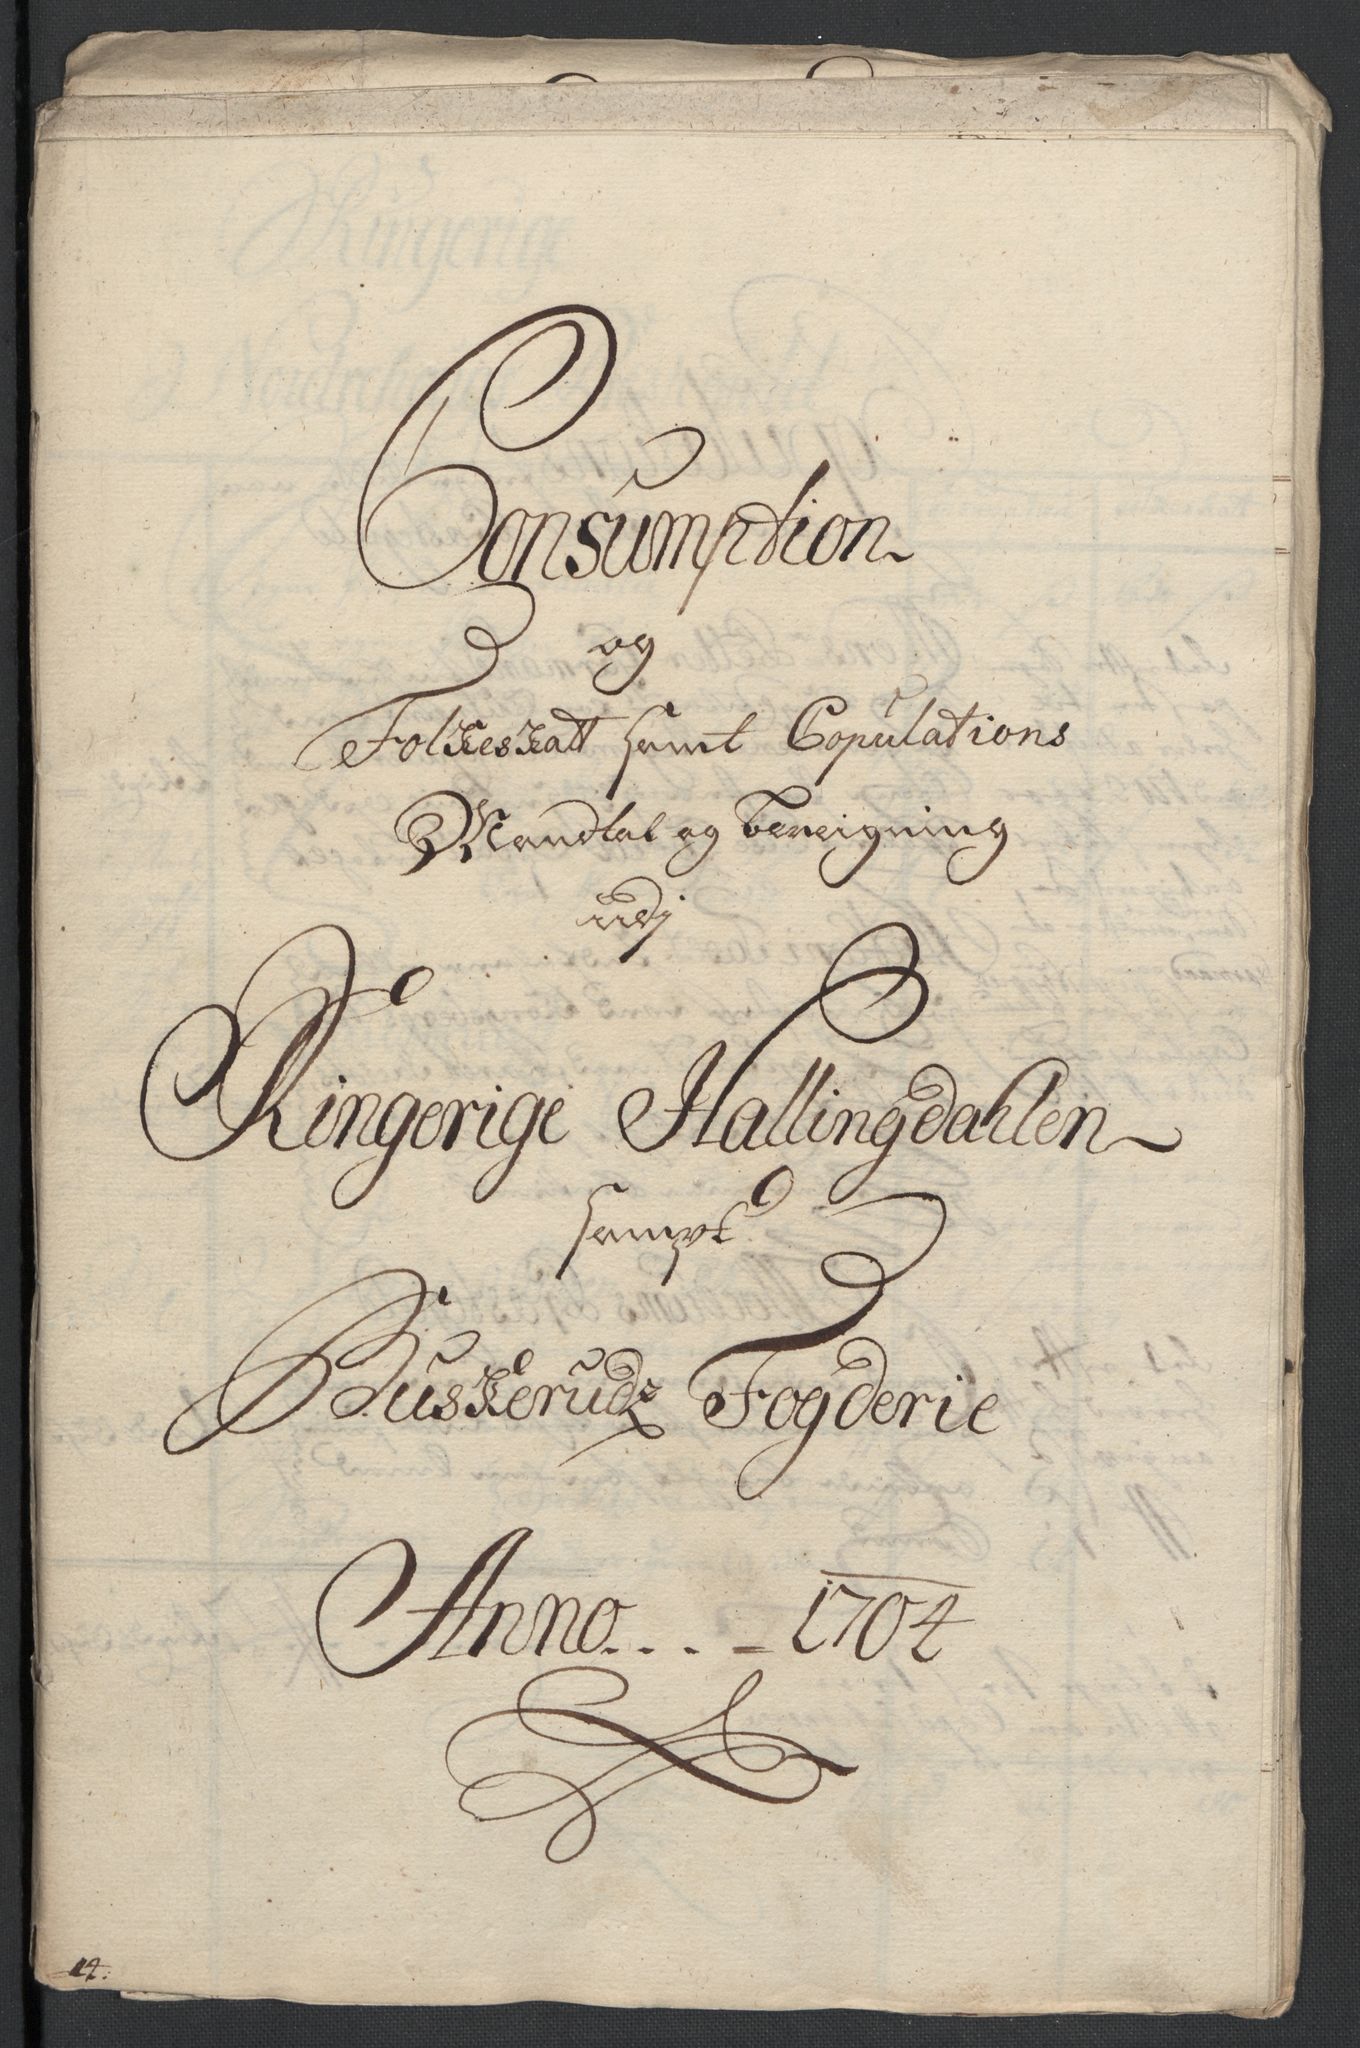 Consumption
og
Folkeskatt samt Copulations
Mandtal og beregning
udj
Ringerige Hallingdahlen
sampt
Buskeruds Fogderie
Anno . . . - 1704